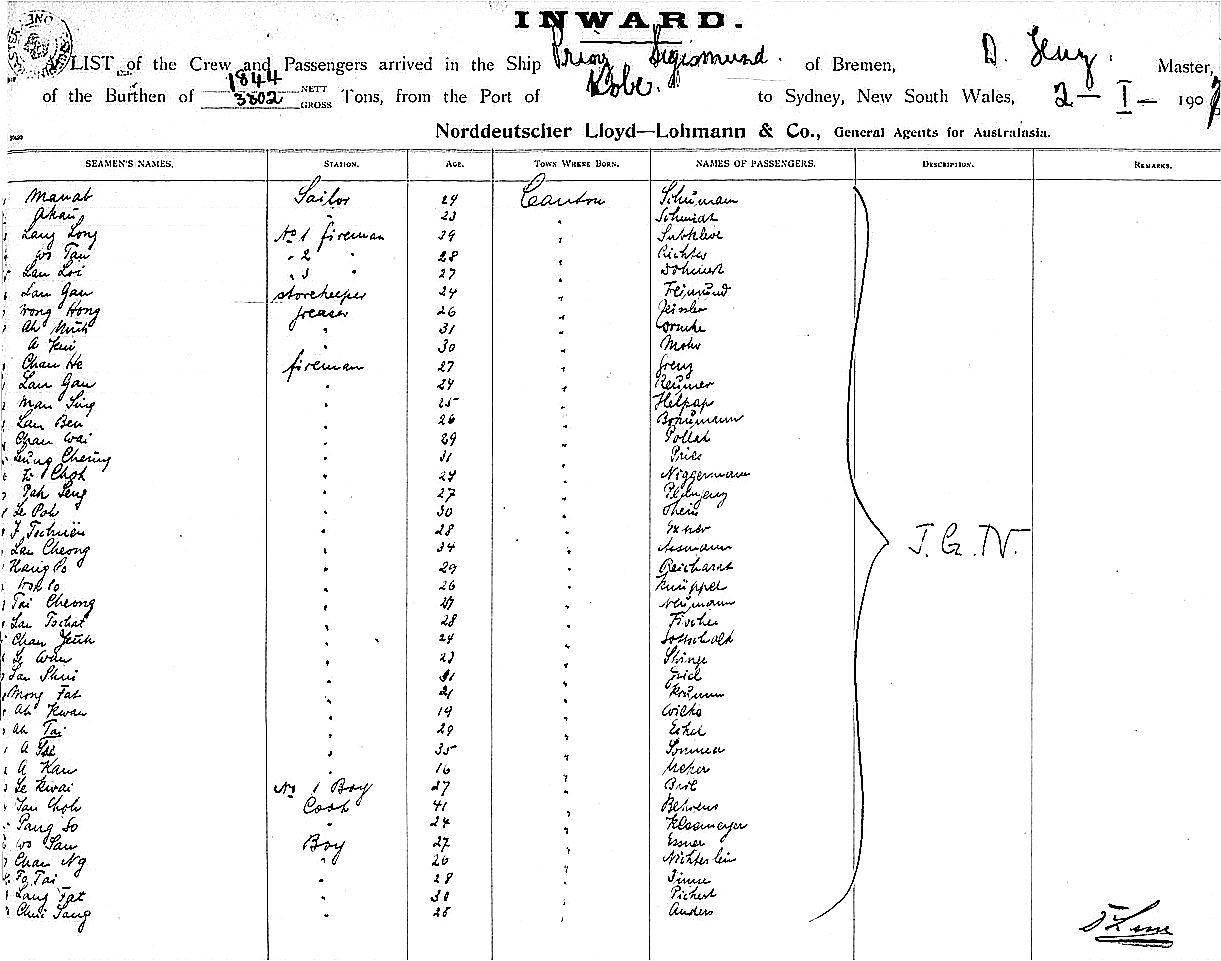 INWARD.
LIST of the Crew and Passengers arrived in the Ship Prinz Sigismund. of Bremen, D. Master,
of the Burthen of 1844 NETT
3302 GROSS Tons, from the Port of Kobe. to Sydney, New South Wales, 2 – I – 190
Norddeutscher Lloyd—Lohmann & Co., General Agents for Australasia.
SEAMEN'S NAMES. STATION. AGE. TOWN WHERE BORN. NAMES OF PASSENGERS. DESCRIPTION. REMARKS.
Manab Sailor 24 Canton Schümann
Akau " 23 " Schmidt
Lang Long No 1 fireman 39 "
Wo Tau " 2 " 28 " Richter
Lau Loi " 3 " 27 "
Lau Gau storekeeper 24 " Freimund
Wong Hong greaser 26 " Zeissler
Ah " 31 "
A " 30 " Mohr
Chan He fireman 27 " Grenz
Lau Gau " 24 " Reümer
Man Sing " 25 " Helpap
Lau Ben " 26 " Bornümann
Chan Wai " 29 " Pollak
Leüng Cheüng " 31 " Pries
Choh " 24 " Niggermann
Pak Seng " 27 "
Le Poh " 30 " Thein
" 28 " Exner
Lau Cheong " 34 " Assmann J. G. N.
Hang So " 29 " Reichardt
Wok So " 26 " Knüppel
Tai Cheong " 27 " Neümann
Lau Tschat " 28 " Fischer
Chan " 24 " Gottschalk
Le Wan " 23 "
Lau Shui " 31 "
Mong Fat " 21 " Krümm
Ah Kwan " 19 " Wilks
Ah Tai " 29 "
A " 35 " Sommer
A Kau " 16 "
Le Kwai No 1 Boy 27 "
Tan Choh Cook 41 " Behrens
Pang So " 24 " Klasmeyer
Wo San Boy 27 " Essner
Chan Ng " 26 " Nichterlein
Fo Tai " 28 " Timme
Lang Fat " 30 " Pichert
Chui Sang " 25 " Anders